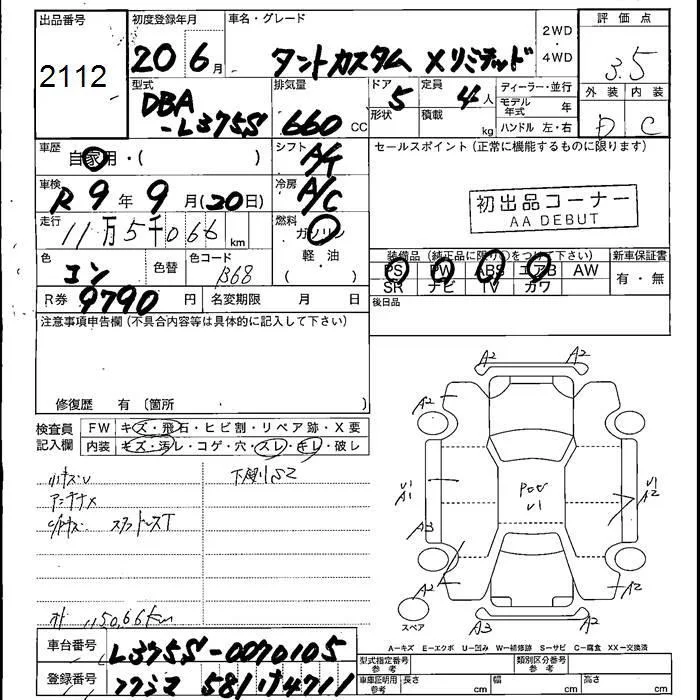 出品番号 初度登録年月 車名・グレード 2WD ・ 4WD 評価点
2112 20 6月 タントカスタム Xリミテッド 3.5
型式 排気量 ドア 定員 ディーラー・並行 外装 内装
DBA 5 4人 モデル年式 年 D C
-L375S 660 CC 形状 積載 kg ハンドル 左・右
車歴 自家用・( ) シフト A/T セールスポイント (正常に機能するものに限ります)
車検 R9年9月(20日) 冷房 A/C 初出品コーナー
AA DEBUT
走行 11万5千066km 燃料 ガソリン
軽・油
( )
色 コン 色替 色コード B68
装備品 (純正品に限り○をつけて下さい) 新車保証書
PS PW ABS エアB AW 有・無
SR ナビ TV カワ
R券 9790円 名変期限 月 日 後日品
注意事項申告欄 (不具合内容等は具体的に記入して下さい)
修復歴 有 〔箇所 〕
検査員 FW キズ・飛石・ヒビ割・リペア跡・X要
記入欄 内装 キズ・汚レ・コゲ・穴・スレ・キレ・破レ
小キズU 下廻りS2
アンテナX
スタットレスT
115066km
A2 A2
A2 A2
U1 A1 Pou U1 U1 A2
A3
A2 A2
スペア A3 A2
A-キズ E-エクボ U-凹み W-補修跡 S-サビ C-腐食 XX-交換済
車台番号 L375S-0070105
登録番号 フクシマ 581け4711
型式指定番号 参考 類別区分番号 参考
車庫証明用 参考 長さ cm 幅 cm 高さ cm